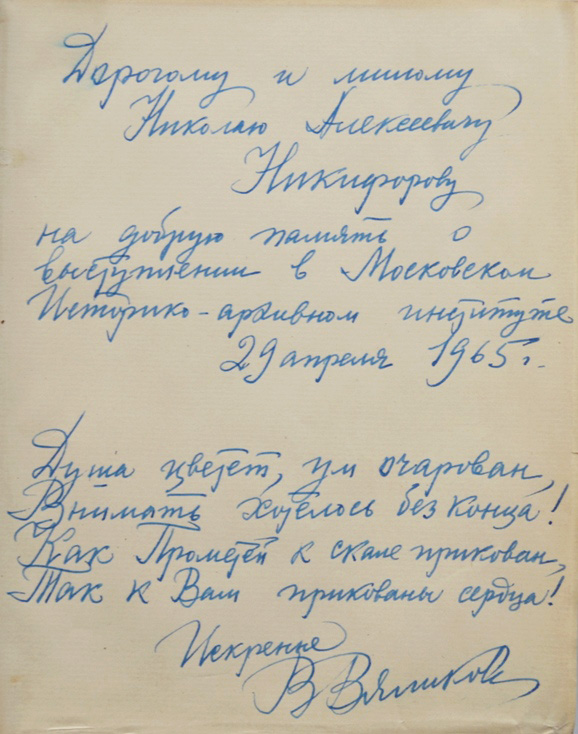 Дорогому и милому
Николаю Алексеевичу
Никифорову
на добрую память о
выступлении в Московском
Историко-архивном институте
29 апреля 1965 г.
Душа цветет, ум очарован,
Внимать хотелось без конца!
Как Прометей к скале прикован,
Так к Вам прикованы сердца!
Искренне
В Вяликов